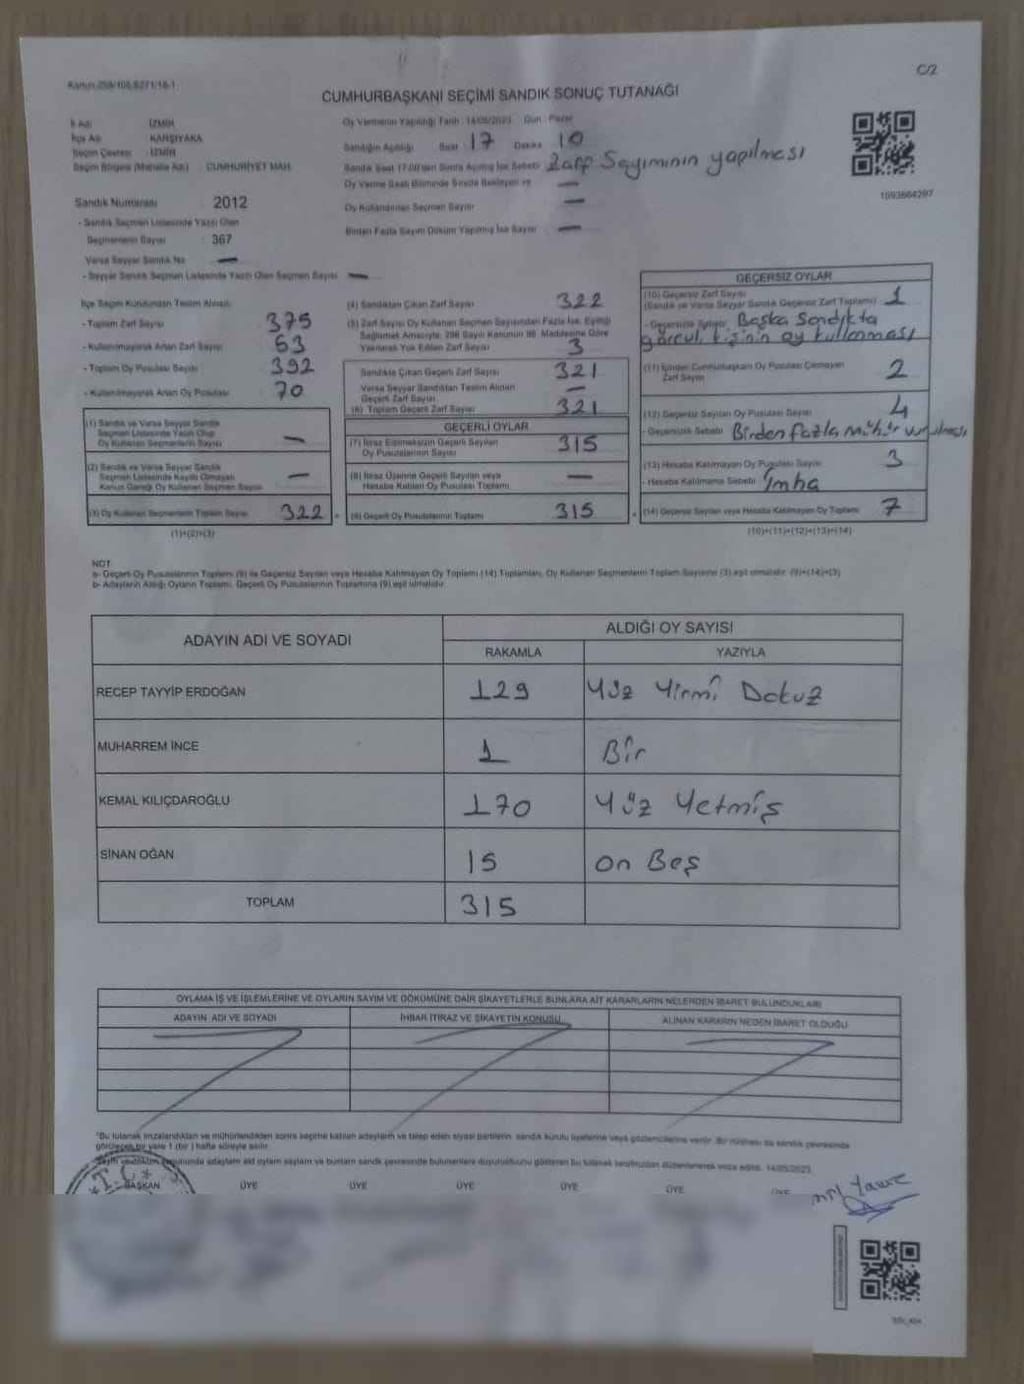 C/2
CUMHURBAŞKANI SEÇİMİ SANDIK SONUÇ TUTANAĞI
İl Adı İZMİR
İlçe Adı KARŞIYAKA
Seçim Çevresi İZMİR
Seçim Bölgesi (Mahalle Adı) CUMHURİYET MAH.
Oy Vermenin Yapıldığı Tarih : 14/05/2023 Gün : Pazar
Sandığın Açıldığı Saat 17 Dakika 10
Sandık Saat 17.00'den Sonra Açılmış İse Sebebi Zarf Sayımının yapılması
Oy Verme Saati Bitiminde Sırada Bekleyen ve —
Oy Kullandırılan Seçmen Sayısı —
Birden Fazla Sayım Döküm Yapılmış İse Sayısı —
1093664297
Sandık Numarası 2012
- Sandık Seçmen Listesinde Yazılı Olan
Seçmenlerin Sayısı 367
Varsa Seyyar Sandık No —
- Seyyar Sandık Seçmen Listesinde Yazılı Olan Seçmen Sayısı —
İlçe Seçim Kurulundan Teslim Alınan
- Toplam Zarf Sayısı 375
- Kullanılmayarak Artan Zarf Sayısı 53
- Toplam Oy Pusulası Sayısı 392
- Kullanılmayarak Artan Oy Pusulası 70
(1) Sandık ve Varsa Seyyar Sandık
Seçmen Listesinde Yazılı Olup
Oy Kullanan Seçmenlerin Sayısı —
(2) Sandık ve Varsa Seyyar Sandık
Seçmen Listesinde Kayıtlı Olmayan
Kanun Gereği Oy Kullanan Seçmen Sayısı —
(3) Oy Kullanan Seçmenlerin Toplam Sayısı 322
(1)+(2)=(3)
(4) Sandıktan Çıkan Zarf Sayısı 322
(5) Zarf Sayısı Oy Kullanan Seçmen Sayısından Fazla İse, Eşitliği
Sağlamak Amacıyla, 298 Sayılı Kanunun 98. Maddesine Göre
Yakılarak Yok Edilen Zarf Sayısı 3
Sandıkta Çıkan Geçerli Zarf Sayısı 321
Varsa Seyyar Sandıktan Teslim Alınan
Geçerli Zarf Sayısı —
(6) Toplam Geçerli Zarf Sayısı 321
GEÇERLİ OYLAR
(7) İtiraz Edilmeksizin Geçerli Sayılan
Oy Pusulalarının Sayısı 315
(8) İtiraz Üzerine Geçerli Sayılan veya
Hesaba Katılan Oy Pusulası Toplamı —
(9) Geçerli Oy Pusulalarının Toplamı 315
GEÇERSİZ OYLAR
(10) Geçersiz Zarf Sayısı
(Sandık ve Varsa Seyyar Sandık Geçersiz Zarf Toplamı) 1
Başka Sandıkta
görevli kişinin oy kullanması
(11) İçinden Cumhurbaşkanı Oy Pusulası Çıkmayan
Zarf Sayısı 2
(12) Geçersiz Sayılan Oy Pusulası Sayısı 4
- Geçersizlik Sebebi Birden fazla mühür vurulması
(13) Hesaba Katılmayan Oy Pusulası Sayısı 3
- Hesaba Katılmama Sebebi İmha
(14) Geçersiz Sayılan veya Hesaba Katılmayan Oy Toplamı 7
(10)+(11)+(12)+(13)=(14)
NOT
a- Geçerli Oy Pusulalarının Toplamı (9) ile Geçersiz Sayılan veya Hesaba Katılmayan Oy Toplamı (14) Toplamları, Oy Kullanan Seçmenlerin Toplam Sayısına (3) eşit olmalıdır. (9)+(14)=(3)
b- Adayların Aldığı Oyların Toplamı, Geçerli Oy Pusulalarının Toplamına (9) eşit olmalıdır.
ADAYIN ADI VE SOYADI ALDIĞI OY SAYISI
RAKAMLA YAZIYLA
RECEP TAYYİP ERDOĞAN 129 Yüz Yirmi Dokuz
MUHARREM İNCE 1 Bir
KEMAL KILIÇDAROĞLU 170 Yüz Yetmiş
SİNAN OĞAN 15 On Beş
TOPLAM 315
OYLAMA İŞ VE İŞLEMLERİNE VE OYLARIN SAYIM VE DÖKÜMÜNE DAİR ŞİKAYETLERLE BUNLARA AİT KARARLARIN NELERDEN İBARET BULUNDUKLARI
ADAYIN ADI VE SOYADI İHBAR İTİRAZ VE ŞİKAYETİN KONUSU ALINAN KARARIN NEDEN İBARET OLDUĞU
*Bu tutanak imzalandıktan ve mühürlendikten sonra seçime katılan adayların ve talep eden siyasi partilerin sandık kurulu üyelerine veya gözlemcilerine verilir. Bir nüshası da sandık çevresinde
görülecek bir yere 1 (bir) hafta süreyle asılır.
T.C.
BAŞKAN ÜYE ÜYE ÜYE ÜYE ÜYE ÜYE